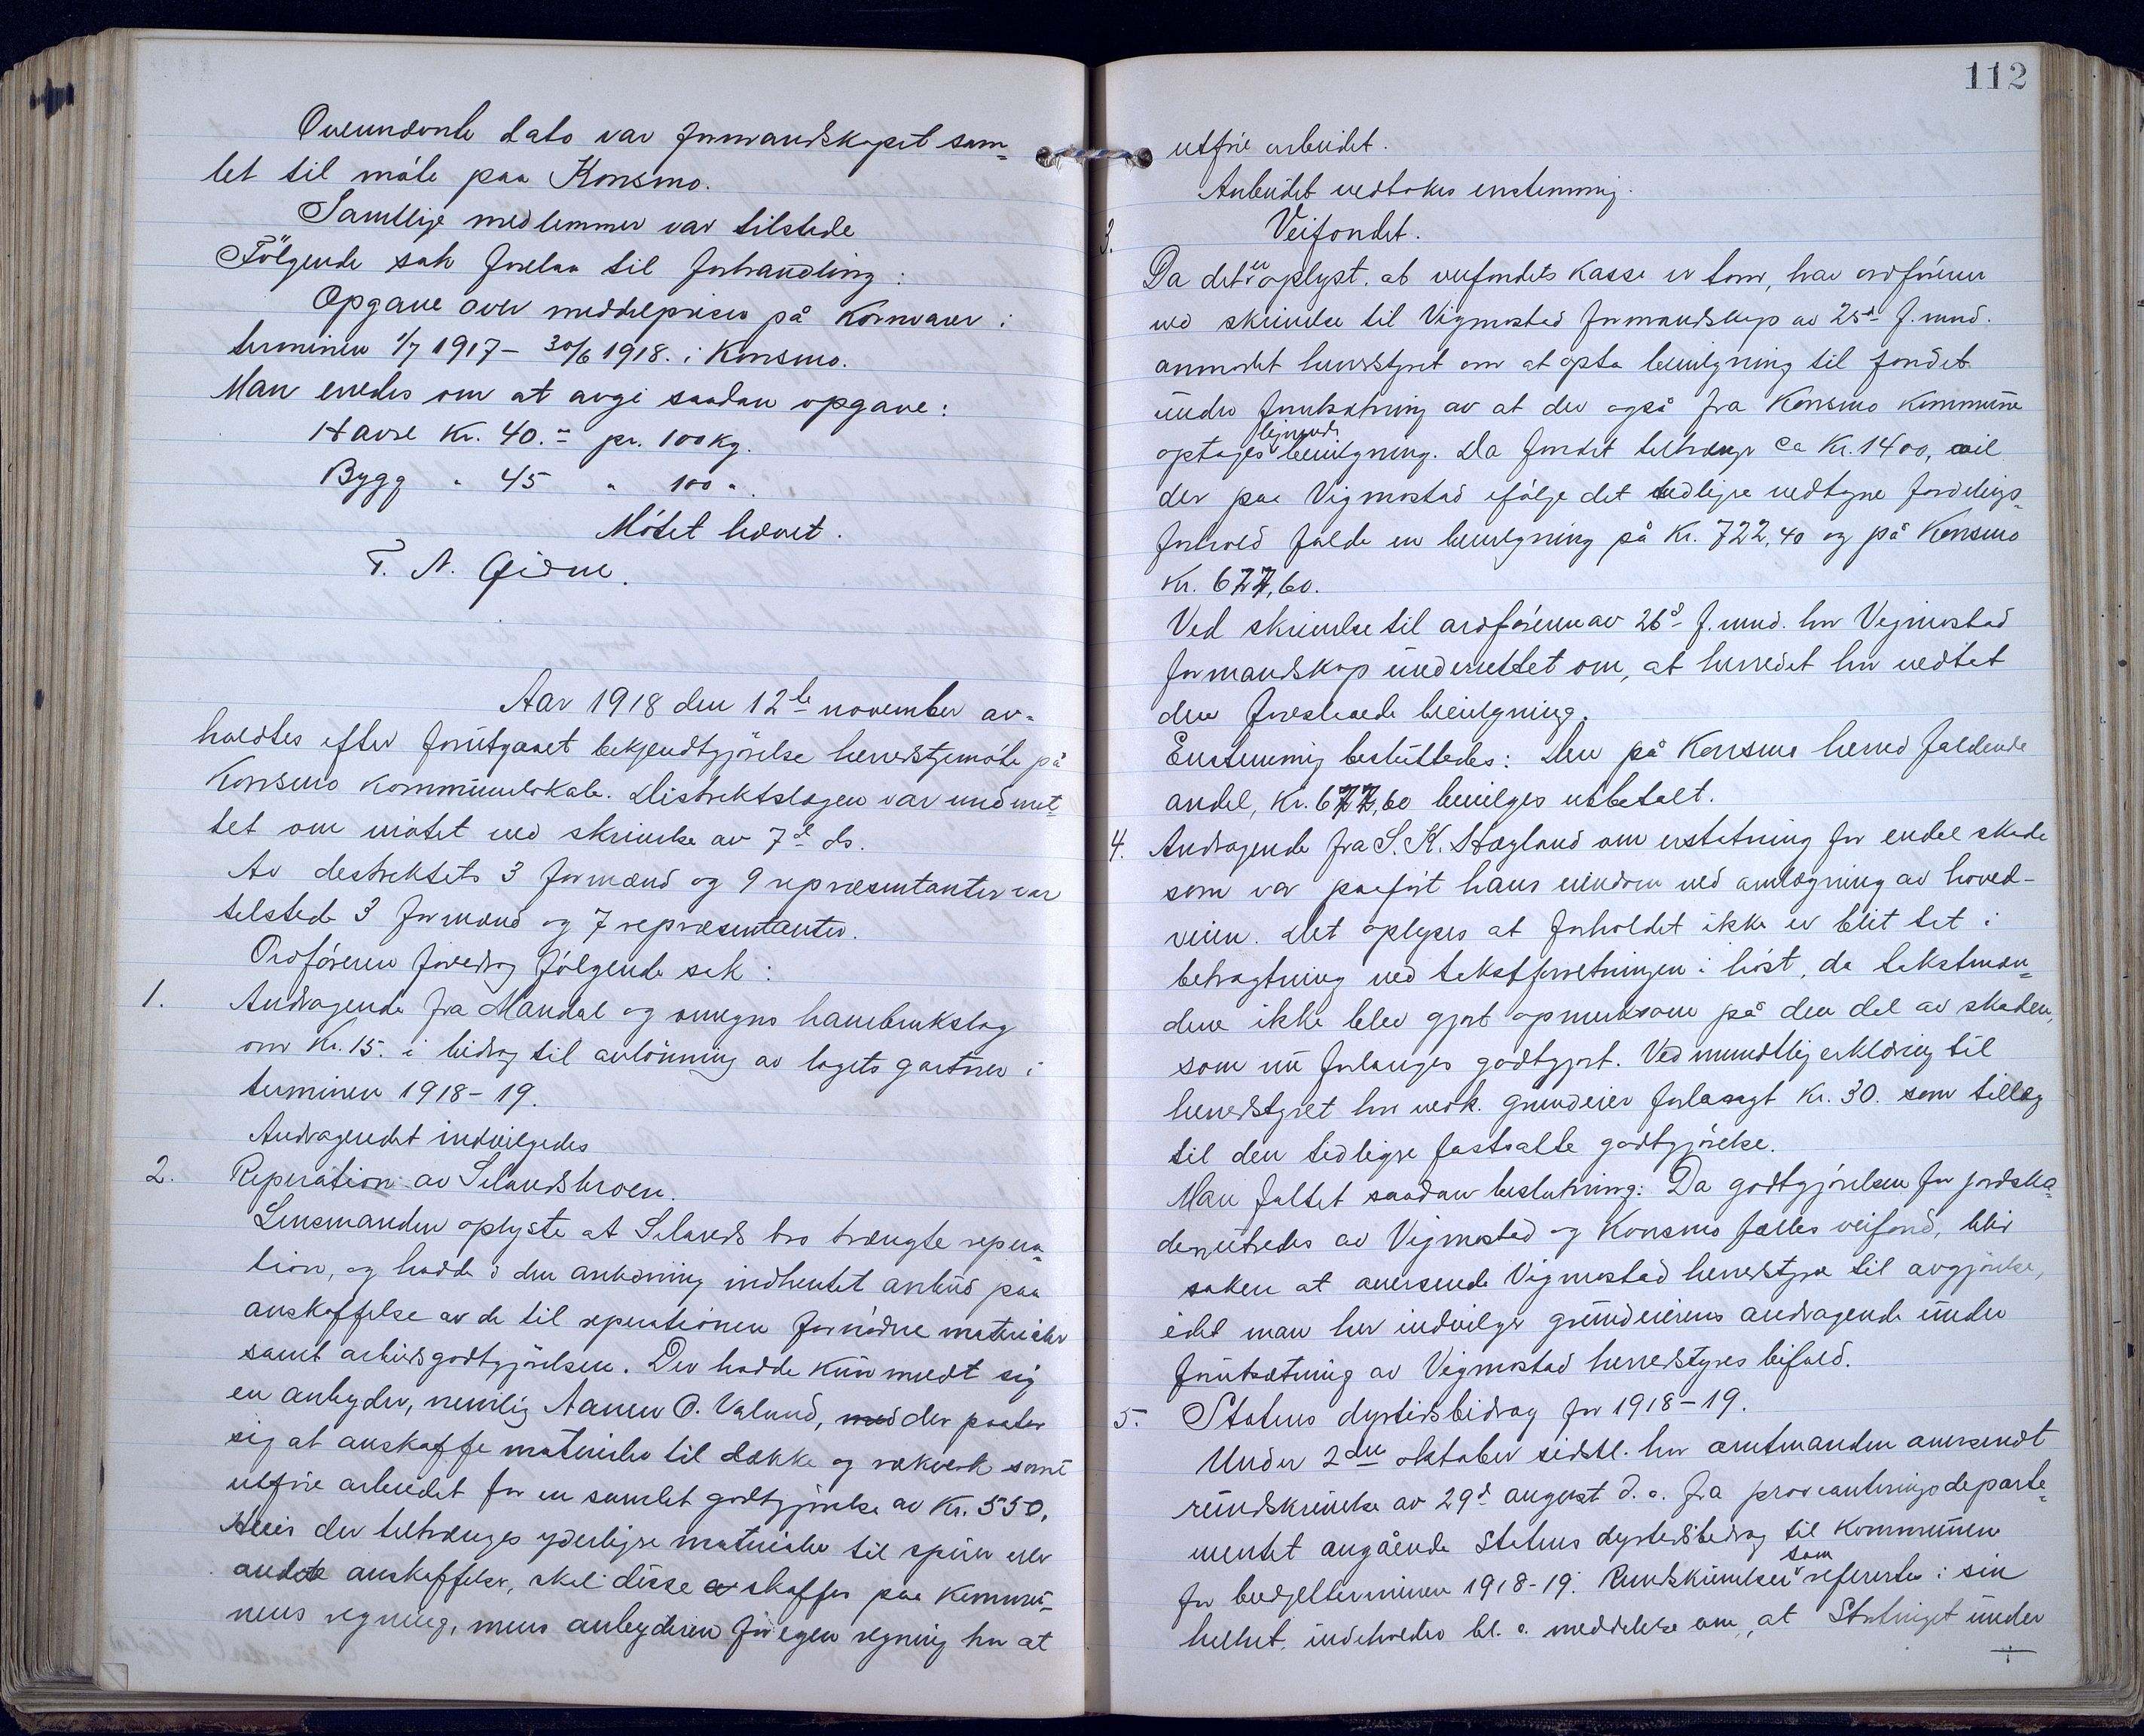 Ovennævnte dato var formandskapet sam-
let til møte paa Konsmo.
Samtlige medlemmer var tilstede
Følgende sak forelaa til forhandling:
Opgave over middelpriser på kornvarer i
terminen 1/7 1917 - 30/6 1918. i Konsmo.
Man enedes om at avgi saadan opgave:
Havre Kr. 40.- pr. 100 kg.
Bygg " 45 " 100 ".
Møtet hævet.
T. N. Gidne.
Aar 1918 den 12te november av-
holdtes efter forutgaaet bekjendtgjørelse herredstyremøte på
Konsmo kommunelokale. Distriktslægen var underret-
tet om møtet ved skrivelse av 7de ds.
Av destriktets 3 formænd og 9 repræsentanter var
telstede 3 formænd og 7 repræsentanter.
Ordføreren foredrog følgende sak:
1. Andragende fra Mandal og omegns havebrukslag
om Kr. 15. i bidrag til avlønning av lagets gartner i
terminen 1918 - 19.
Andragendet indvilgedes
2. Reperation av Selandsbroen.
Lensmanden oplyste at Selands bro trængte repera-
tion, og hadde i den anledning indhentet anbud paa
anskaffelse av de til reperationen fornødne materialer
samt arbeidsgodtgjørelsen. Der hadde kun meldt sig
en anbyder, nemlig Aanen O. Valand, med der paatar
sig at anskaffe materialer til dække og rækverk samt
utføre arbeidet for en samlet godtgjørelse av Kr. 550.
Hvis der tiltrænges yderligre materialer til spirer eller
andre anskaffelser, skal disse skaffes paa kommu-
nens regning, mens anbyderen for egen regning har at
112
utføre arbeidet.
Anbudet vedtokes enstemmig.
3. Veifondet.
Da det er oplyst, at veifondets kasse er tom, har ordføreren
ved skrivelse til Vigmostad formandskap av 25de f. mnd.
anmodet herredstyret om at opta bevilgning til fondet
under forutsætning av at der også fra Konsmo kommune
optages lignende bevilgning. Da fondet tiltrænger ca Kr. 1400, vil
der paa Vigmostad ifølge det tidligre vedtagne fordelings-
forhold falde en bevilgning på Kr. 722,40 og på Konsmo
Kr. 677,60.
Ved skrivelse til ordføreren av 26de f. mnd. har Vigmostad
formandskap underrettet om, at herredet har vedtat
den foreslaaede bevilgning.
Enstemmig besluttedes: Den på Konsmo herred faldende
andel, Kr. 677,60 bevilges utbetalt.
4. Andragende fra S. K. Hægland om erstatning for endel skade
som var paaført hans eiendom ved omlægning av hoved-
veien. Det oplyses at forholdet ikke er blit tat i
betragtning ved takstforretningen i høst, da takstmæn-
dene ikke blev gjort opmerksom på den del av skaden,
som nu forlanges godtgjort. Ved mundtlig erklæring til
herredstyret har vedk. grundeier forlangt Kr. 30. som tillæg
til den tidligre fastsatte godtgjørelse.
Man fattet saadan beslutning: Da godtgjørelsen for jordska-
den utredes av Vigmostad og Konsmo fælles veifond, blir
saken at oversende Vigmostad herredstyre til avgjørelse,
idet man her indvilger grundeierens andragende under
forutsætning av Vigmostad herredstyres bifald.
5. Statens dyrtidsbidrag for 1918 - 19.
Under 2den oktober sidstl. har amtmanden oversendt
rundskrivelse av 29de august d. a. fra provianteringsdeparte-
mentet angående Statens dyrtidsbidrag til kommunene
for budgetterminen 1918 - 19. Rundskrivelsen som refereertes i sin
helhet, indeholder bl. a. meddelelse om, at Stortinget under